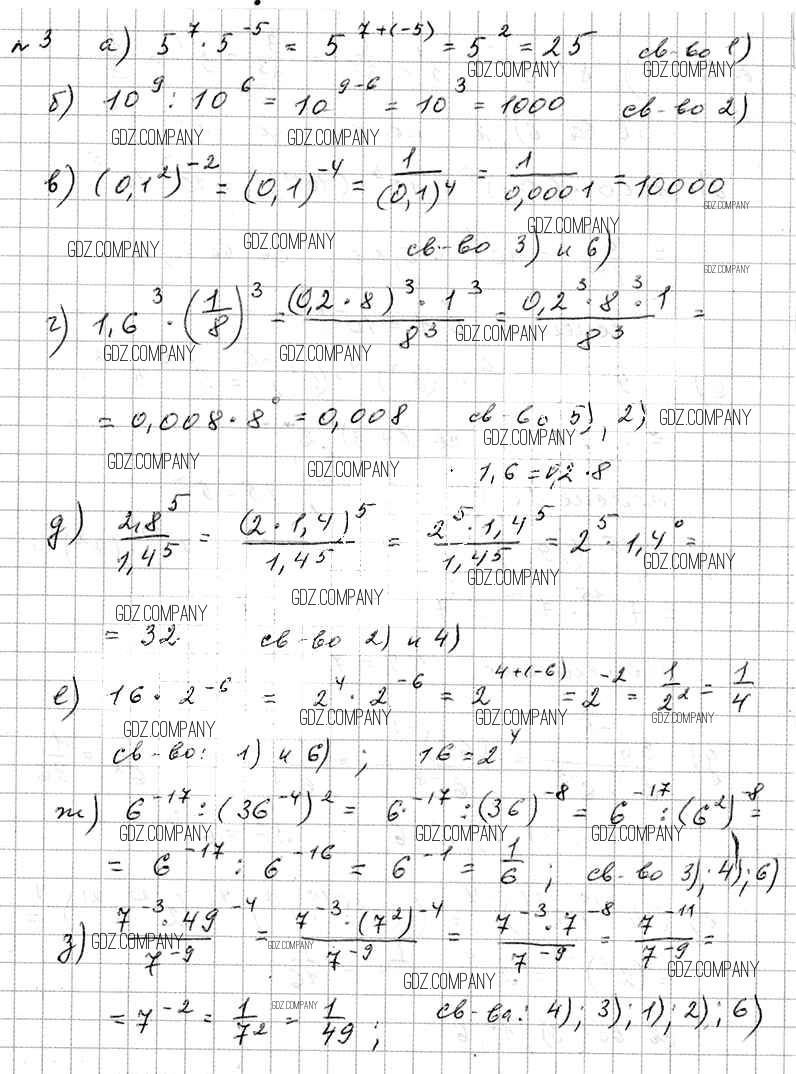 №3 а) 5⁷ · 5⁻⁵ = 5⁷⁺⁽⁻⁵⁾ = 5² = 25 св-во 1)
GDZ.COMPANY GDZ.COMPANY
б) 10⁹ : 10⁶ = 10⁹⁻⁶ = 10³ = 1000 св-во 2)
GDZ.COMPANY GDZ.COMPANY
в) (0,1²)⁻² = (0,1)⁻⁴ = 1/(0,1)⁴ = 1/0,0001 = 10000
GDZ.COMPANY
GDZ.COMPANY GDZ.COMPANY GDZ.COMPANY
св-во 3) и 6)
GDZ.COMPANY
г) 1,6³ · (1/8)³ = (0,2 · 8)³ · 1³/8³ = 0,2³ · 8³ · 1/8³ =
GDZ.COMPANY GDZ.COMPANY GDZ.COMPANY
= 0,008 · 8⁰ = 0,008 св-во 5), 2);
GDZ.COMPANY GDZ.COMPANY
GDZ.COMPANY GDZ.COMPANY
1,6 = 0,2 · 8
д) 2,8⁵/1,4⁵ = (2 · 1,4)⁵/1,4⁵ = 2⁵ · 1,4⁵/1,4⁵ = 2⁵ · 1,4⁰ =
GDZ.COMPANY GDZ.COMPANY
GDZ.COMPANY GDZ.COMPANY
= 32. св-во 2) и 4)
е) 16 · 2⁻⁶ = 2⁴ · 2⁻⁶ = 2⁴⁺⁽⁻⁶⁾ = 2⁻² = 1/2² = 1/4
GDZ.COMPANY GDZ.COMPANY GDZ.COMPANY GDZ.COMPANY
св-во: 1) и 6) ; 16 = 2⁴
ж) 6⁻¹⁷ : (36⁻⁴)² = 6⁻¹⁷ : (36)⁻⁸ = 6⁻¹⁷ : (6²)⁻⁸ =
GDZ.COMPANY GDZ.COMPANY GDZ.COMPANY
= 6⁻¹⁷ : 6⁻¹⁶ = 6⁻¹ = 1/6 ; св-во 3); 4); 6)
з) 7⁻³ · 49⁻⁴/7⁻⁹ = 7⁻³ · (7²)⁻⁴/7⁻⁹ = 7⁻³ · 7⁻⁸/7⁻⁹ = 7⁻¹¹/7⁻⁹ =
GDZ.COMPANY GDZ.COMPANY GDZ.COMPANY GDZ.COMPANY
= 7⁻² = 1/7² = 1/49 ; св-ва: 4); 3); 1); 2); 6)
GDZ.COMPANY